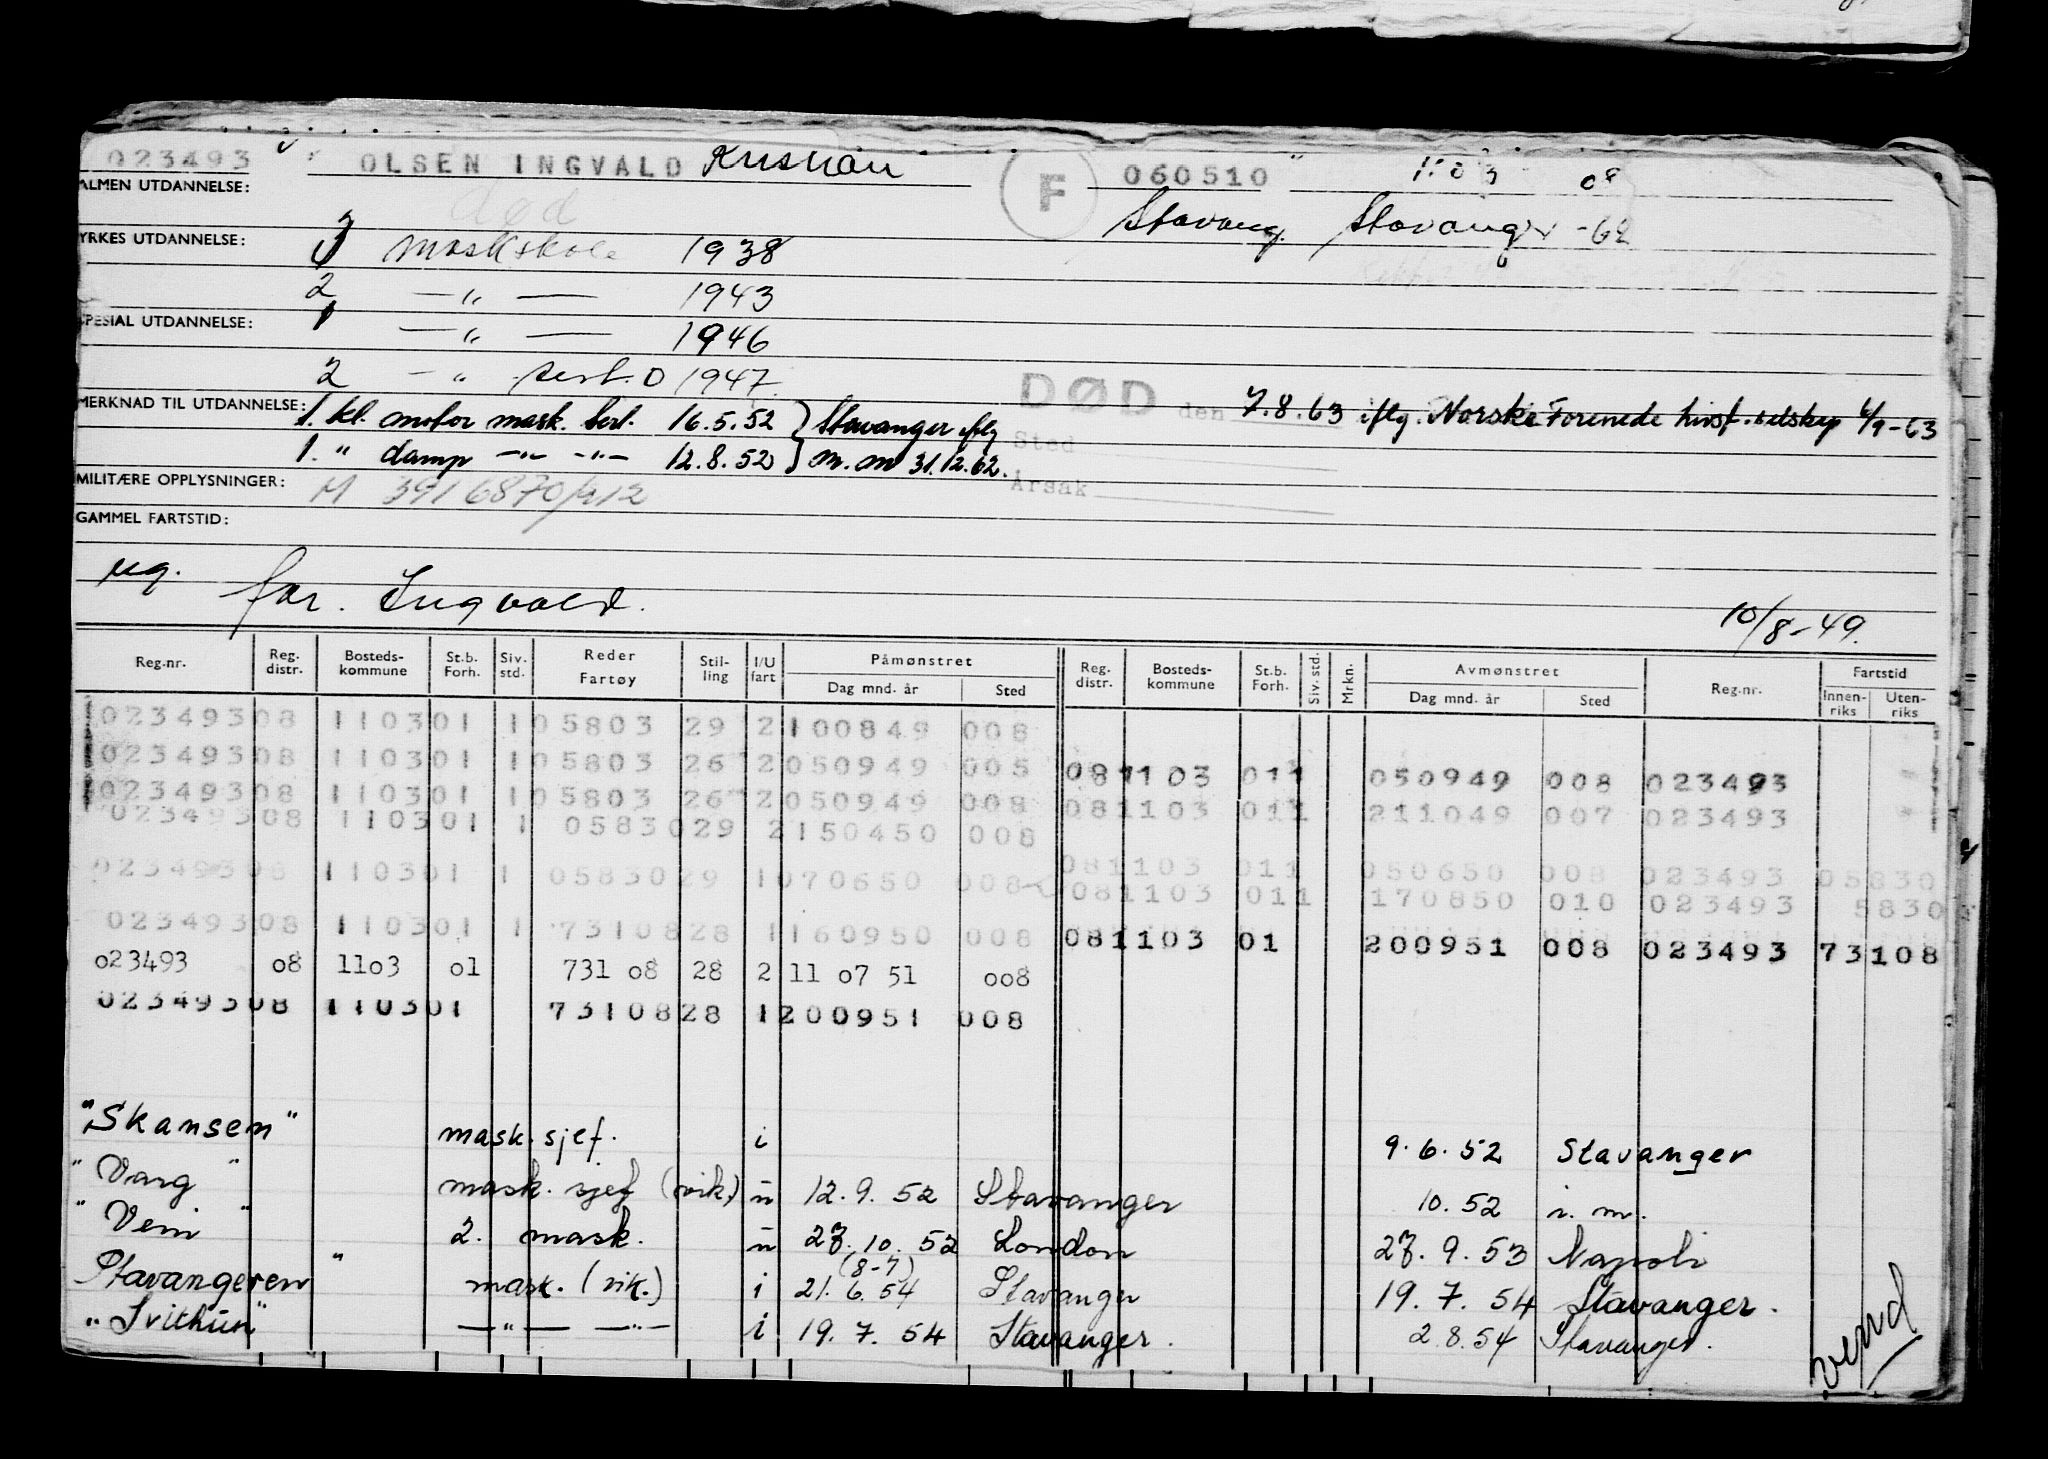 023493 OLSEN INGVALD Kristian F 060510 1103 08
ALMEN UTDANNELSE: død Stavang. Stavanger -62
YRKES UTDANNELSE: 3 maskskole 1938
2 —"— 1943
SPESIAL UTDANNELSE: 1 —"— 1946
2 —" sert. D 1947
DØD den 7.8.63 iflg. Norske Forenede livsf.selskap 6/9-63
MERKNAD TIL UTDANNELSE: 1. kl. motor mask. sert. 16.5.52 } Stavanger iflg
Sted
1. " damp —"— —"— 12.8.52 } m.m 31.12.62.
Årsak
MILITÆRE OPPLYSNINGER: M 3916870/412
GAMMEL FARTSTID:
ug. far. Ingvald. 10/8-49.
Reg.nr. Reg. distr. Bosteds- kommune St.b. Forh. Siv. std. Reder Fartøy Stil- ling I/U fart Påmønstret Dag mnd. år Sted Reg. distr. Bosteds- kommune St.b. Forh. Siv. std. Mrkn. Avmønstret Dag mnd. år Sted Reg.nr. Fartstid Innen- riks Uten- riks
023493 08 1103 01 1 05803 29 2 100849 008
023493 08 1103 01 1 05803 26 2 050949 005 08 1103 01 1 050949 008 023493
023493 08 1103 01 1 05803 26 2 050949 008 08 1103 01 1 211049 007 023493
023493 08 1103 01 1 05830 29 2 150450 008
08 1103 01 1 050650 008 023493 05830
023493 08 1103 01 1 05830 29 1 070650 008 08 1103 01 1 170850 010 023493 5830
023493 08 1103 01 1 73108 28 1 160950 008 08 1103 01 200951 008 023493 73108
o23493 o8 11o3 o1 731 o8 28 2 11 o7 51 oo8
023493 08 1103 01 73108 28 1 200951 008
"Skansen" mask. sjef. i 9.6.52 Stavanger
"Varg" mask. sjef (vik.) u 12.9.52 Stavanger 10.52 i. m.
"Veni" 2. mask. u 23.10.52 London 23.9.53 Napoli
(8-7)
Stavangeren" mask. (vik.) i 21.6.54 Stavanger 19.7.54 Stavanger.
"Svithun" —"— —"— i 19.7.54 Stavanger. 2.8.54 Stavanger.
vend